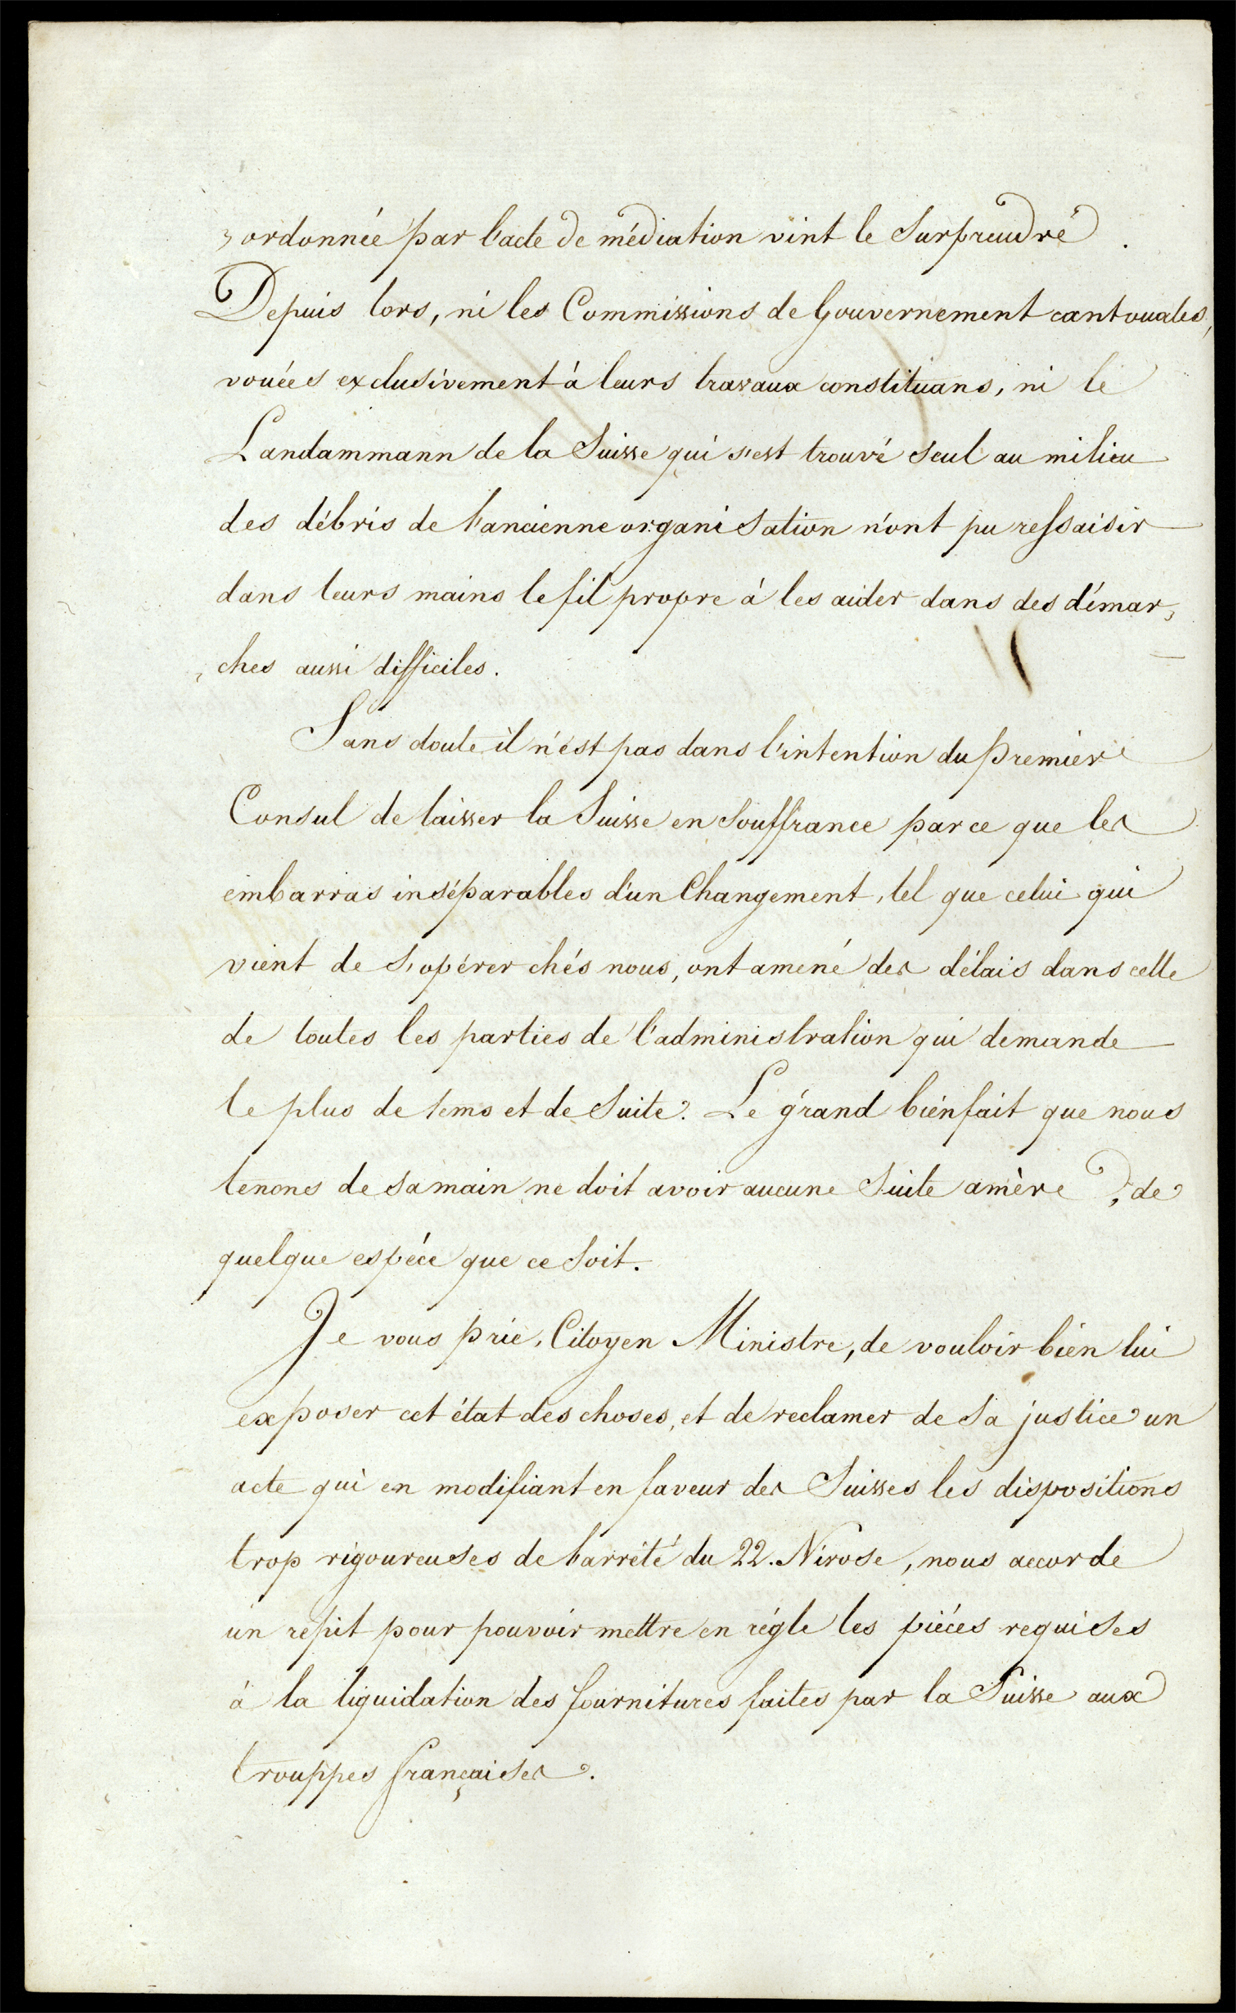 „ordonnée par l'acte de médiation vint le Surprendre.
Depuis lors, ni les Commissions de Gouvernement cantonales,
vouées exclusivement à leurs travaux constituans, ni le
Landammann de la Suisse qui s'est trouvé Seul au milieu
des débris de l'ancienne organiSation n'ont pu resSaisir
dans leurs mains le fil propre à les aider dans des démar„
„ches aussi difficiles.
Sans doute il n'est pas dans l'intention du Premier
Consul de laisser la Suisse en Souffrance parce que les
embarras inséparables d'un Changement, tel que celui qui
vient de S'opérer chés nous, ont amené des délais dans celle
de toutes les parties de l'administration qui demande
le plus de tems et de Suite. Le grand bienfait que nous
tenons de Sa main ne doit avoir aucune Suite amère, de
quelque espéce que ce Soit.
Je vous prie, Citoyen Ministre, de vouloir bien lui
exposer cet état des choses, et de reclamer de Sa justice un
acte qui en modifiant en faveur des Suisses les dispositions
trop rigoureuses de l'arrété du 22. Nivose, nous accorde
un répit pour pouvoir mettre en régle les piéces requiSes
à la liquidation des fournitures faites par la Suisse aux
trouppes françaiSes.